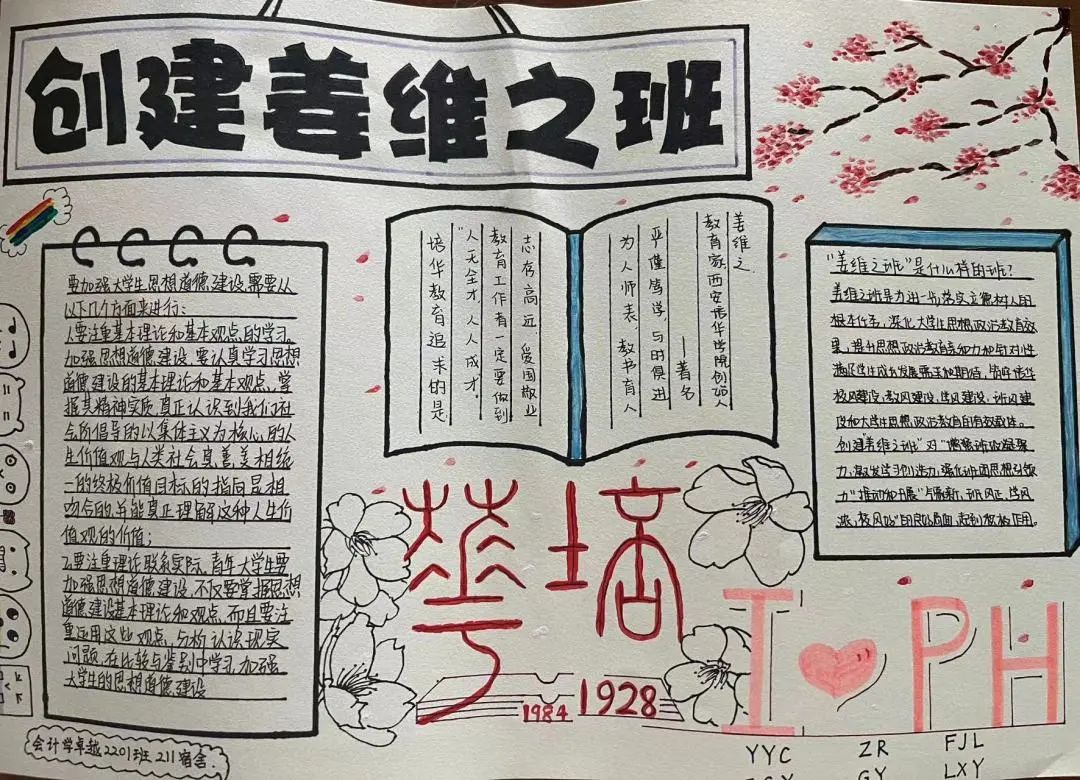 创建姜维之班
要加强大学生思想道德建设,需要从
以下几个方面来进行:
1.要注重基本理论和基本观点的学习.
加强思想道德建设,要认真学习思想
道德建设的基本理论和基本观点,掌
握其精神实质,真正认识到我们社
会所倡导的以集体主义为核心的人
生价值观与人类社会真善美相统
一的终极价值目标的指向是相
吻合的,并能真正理解这种人生价
值观的价值;
2.要注重理论联系实际,青年大学生要
加强思想道德建设,不仅要掌握思想
道德建设基本理论和观点,而且要注
重运用这些观点,分析认识现实
问题,在比较与鉴别中学习,加强
大学生的思想道德建设
会计学卓越2201班211宿舍.
姜维之
教育家,西安培华学院创始人
——著名
严谨笃学,与时俱进
为人师表,教书育人
志存高远,爱国敬业
教育工作者一定要做到
"人无全才,人人成才.
培华教育追求的是
"姜维之班"是什么样的班?
姜维之班是为进一步落实立德树人的
根本任务,深化大学生思想政治教育效
果,提升思想政治教育亲和力和针对性
满足学生成长发展需求和期待,
校风建设,教风建设,学风建设,班风建
设和大学生思想政治教育的有效载体。
创建"姜维之班"对"增强班级凝聚
力,激发学习创造力,强化班团思想引领
力"推动和形成"
浓,校风好"的良好局面,起到积极作用。
培華
1984 1928
I PH
YYC ZR FJL
GY LXY